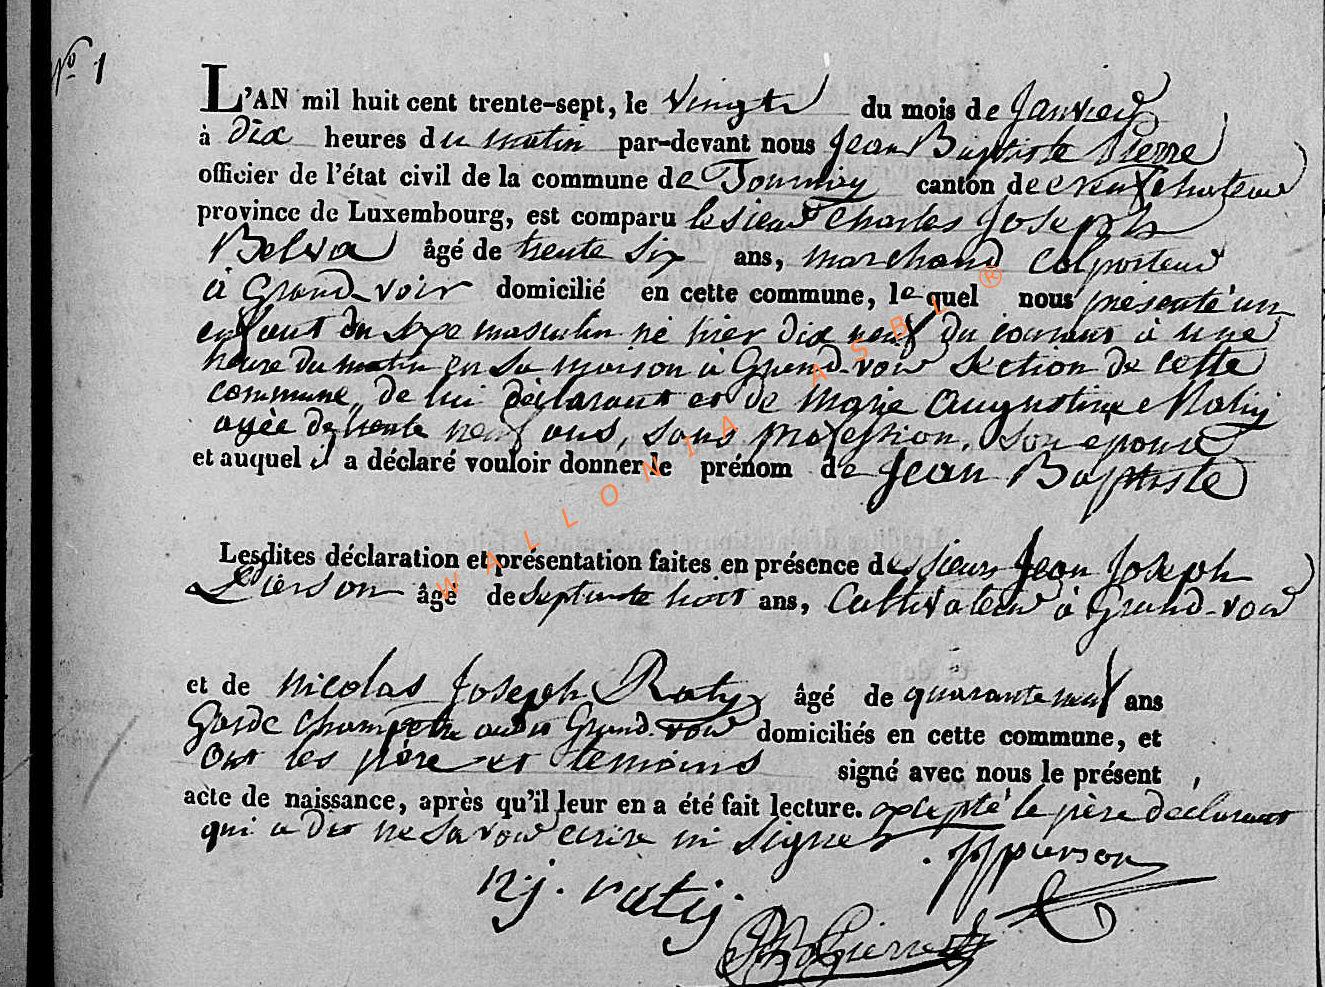 N° 1
L'AN mil huit cent trente-sept, le vingt du mois de Janvier
à dix heures du matin par-devant nous Jean Baptiste Pierre
officier de l'état civil de la commune de Tournay canton de neufchateau
province de Luxembourg, est comparu le sieur Charles Joseph
Belva âgé de trente six ans, marchand colporteur
à Grand-voir domicilié en cette commune, lequel nous présenté un
enfant du sexe masculin né hier dix neuf du courant à une
heure du matin en sa maison à Grand-voir section de cette
commune, de lui déclarant et de Marie Augustine
agée de trente neuf ans, sans profession, son épouse
et auquel il a déclaré vouloir donner le prénom de Jean Baptiste
Lesdites déclaration et présentation faites en présence des sieurs Jean Joseph
Pierson âgé de septante huit ans, Cultivateur à Grand-voir
et de nicolas Joseph Raty âgé de quarante neuf ans
Garde champetre audit Grand-voir domiciliés en cette commune, et
ont les père et temoins signé avec nous le présent
acte de naissance, après qu'il leur en a été fait lecture. excepté le père déclarant
qui a dit ne savoir ecrire ni signer
JJ pierson
n.j. raty
JB Pierre
WALLONIA ASBL ®